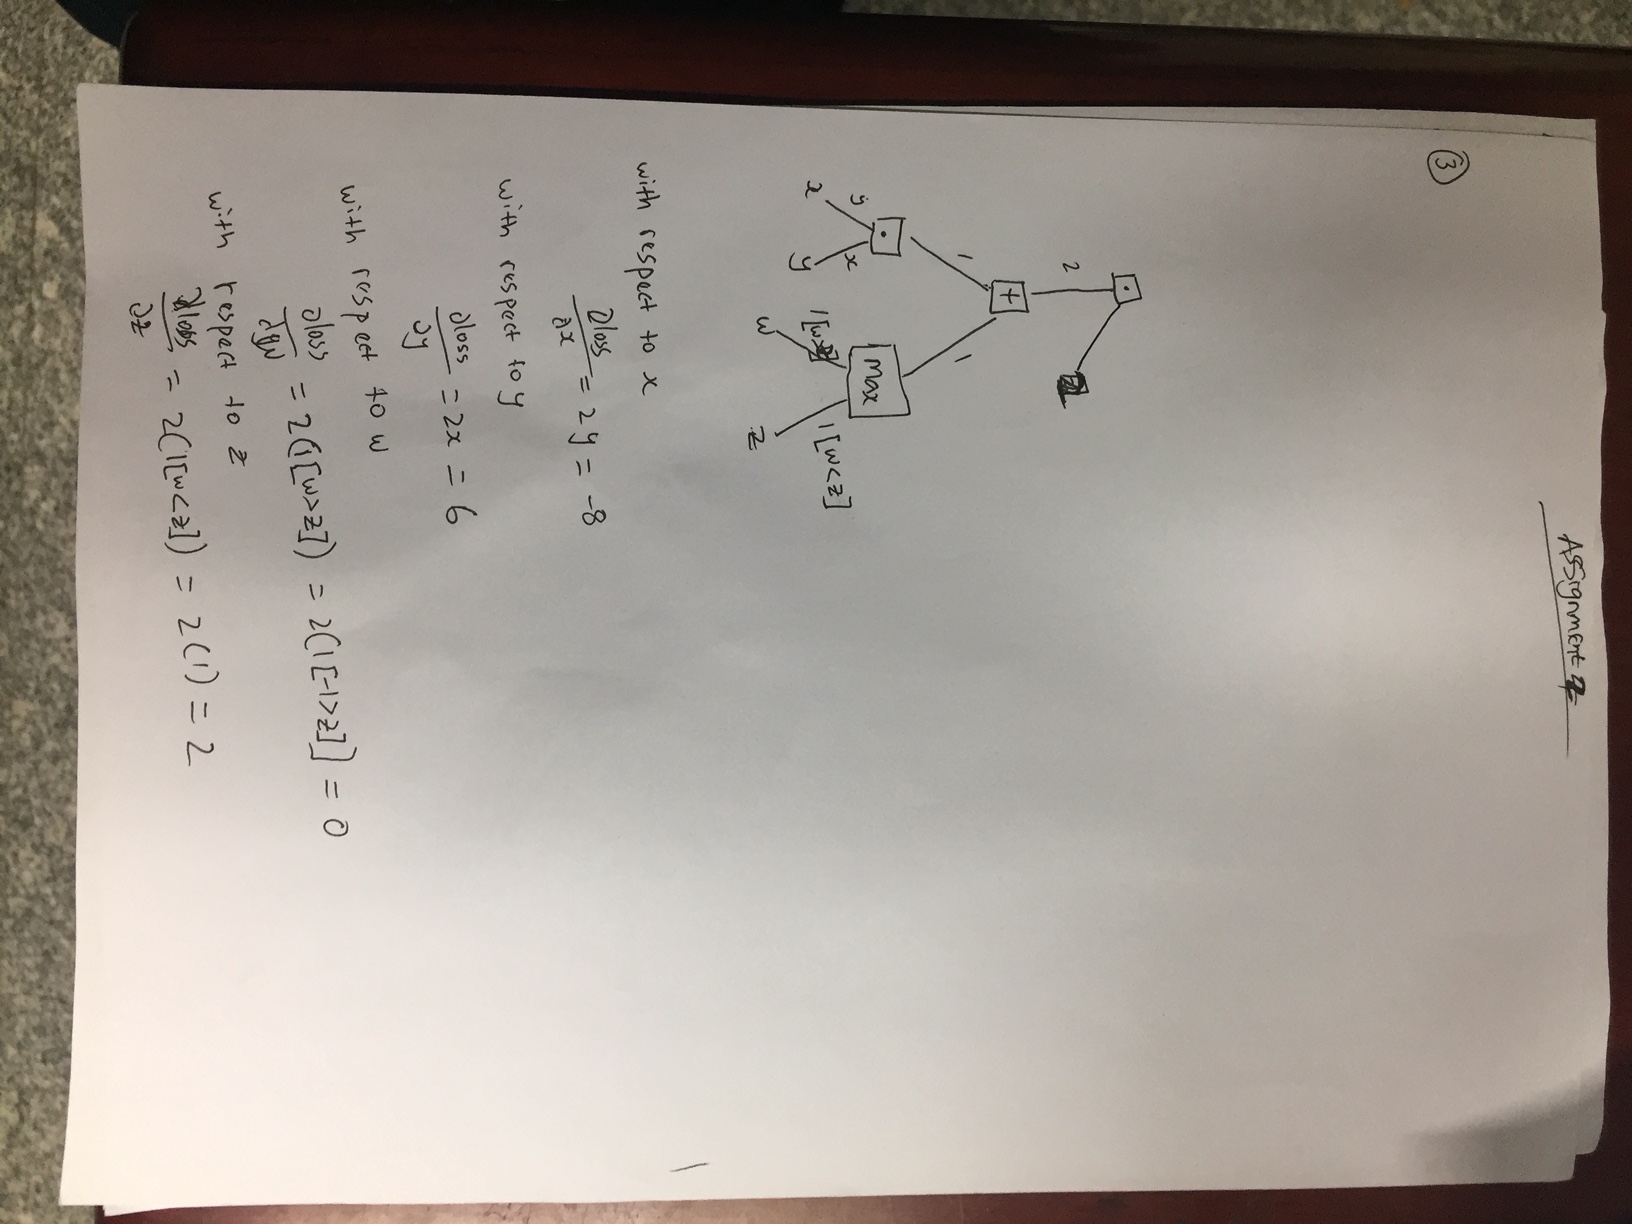 Assignment
③
·
2
+
1 1
· max
y x 1[w 1[w<z]
x y w z
with respect to x
∂loss/∂x = 2y = -8
with respect to y
∂loss/∂y = 2x = 6
with respect to w
∂loss/∂w = 2(1[w>z]) = 2(1[-1>z]] = 0
with respect to z
∂loss/∂z = 2(1[w<z]) = 2(1) = 2